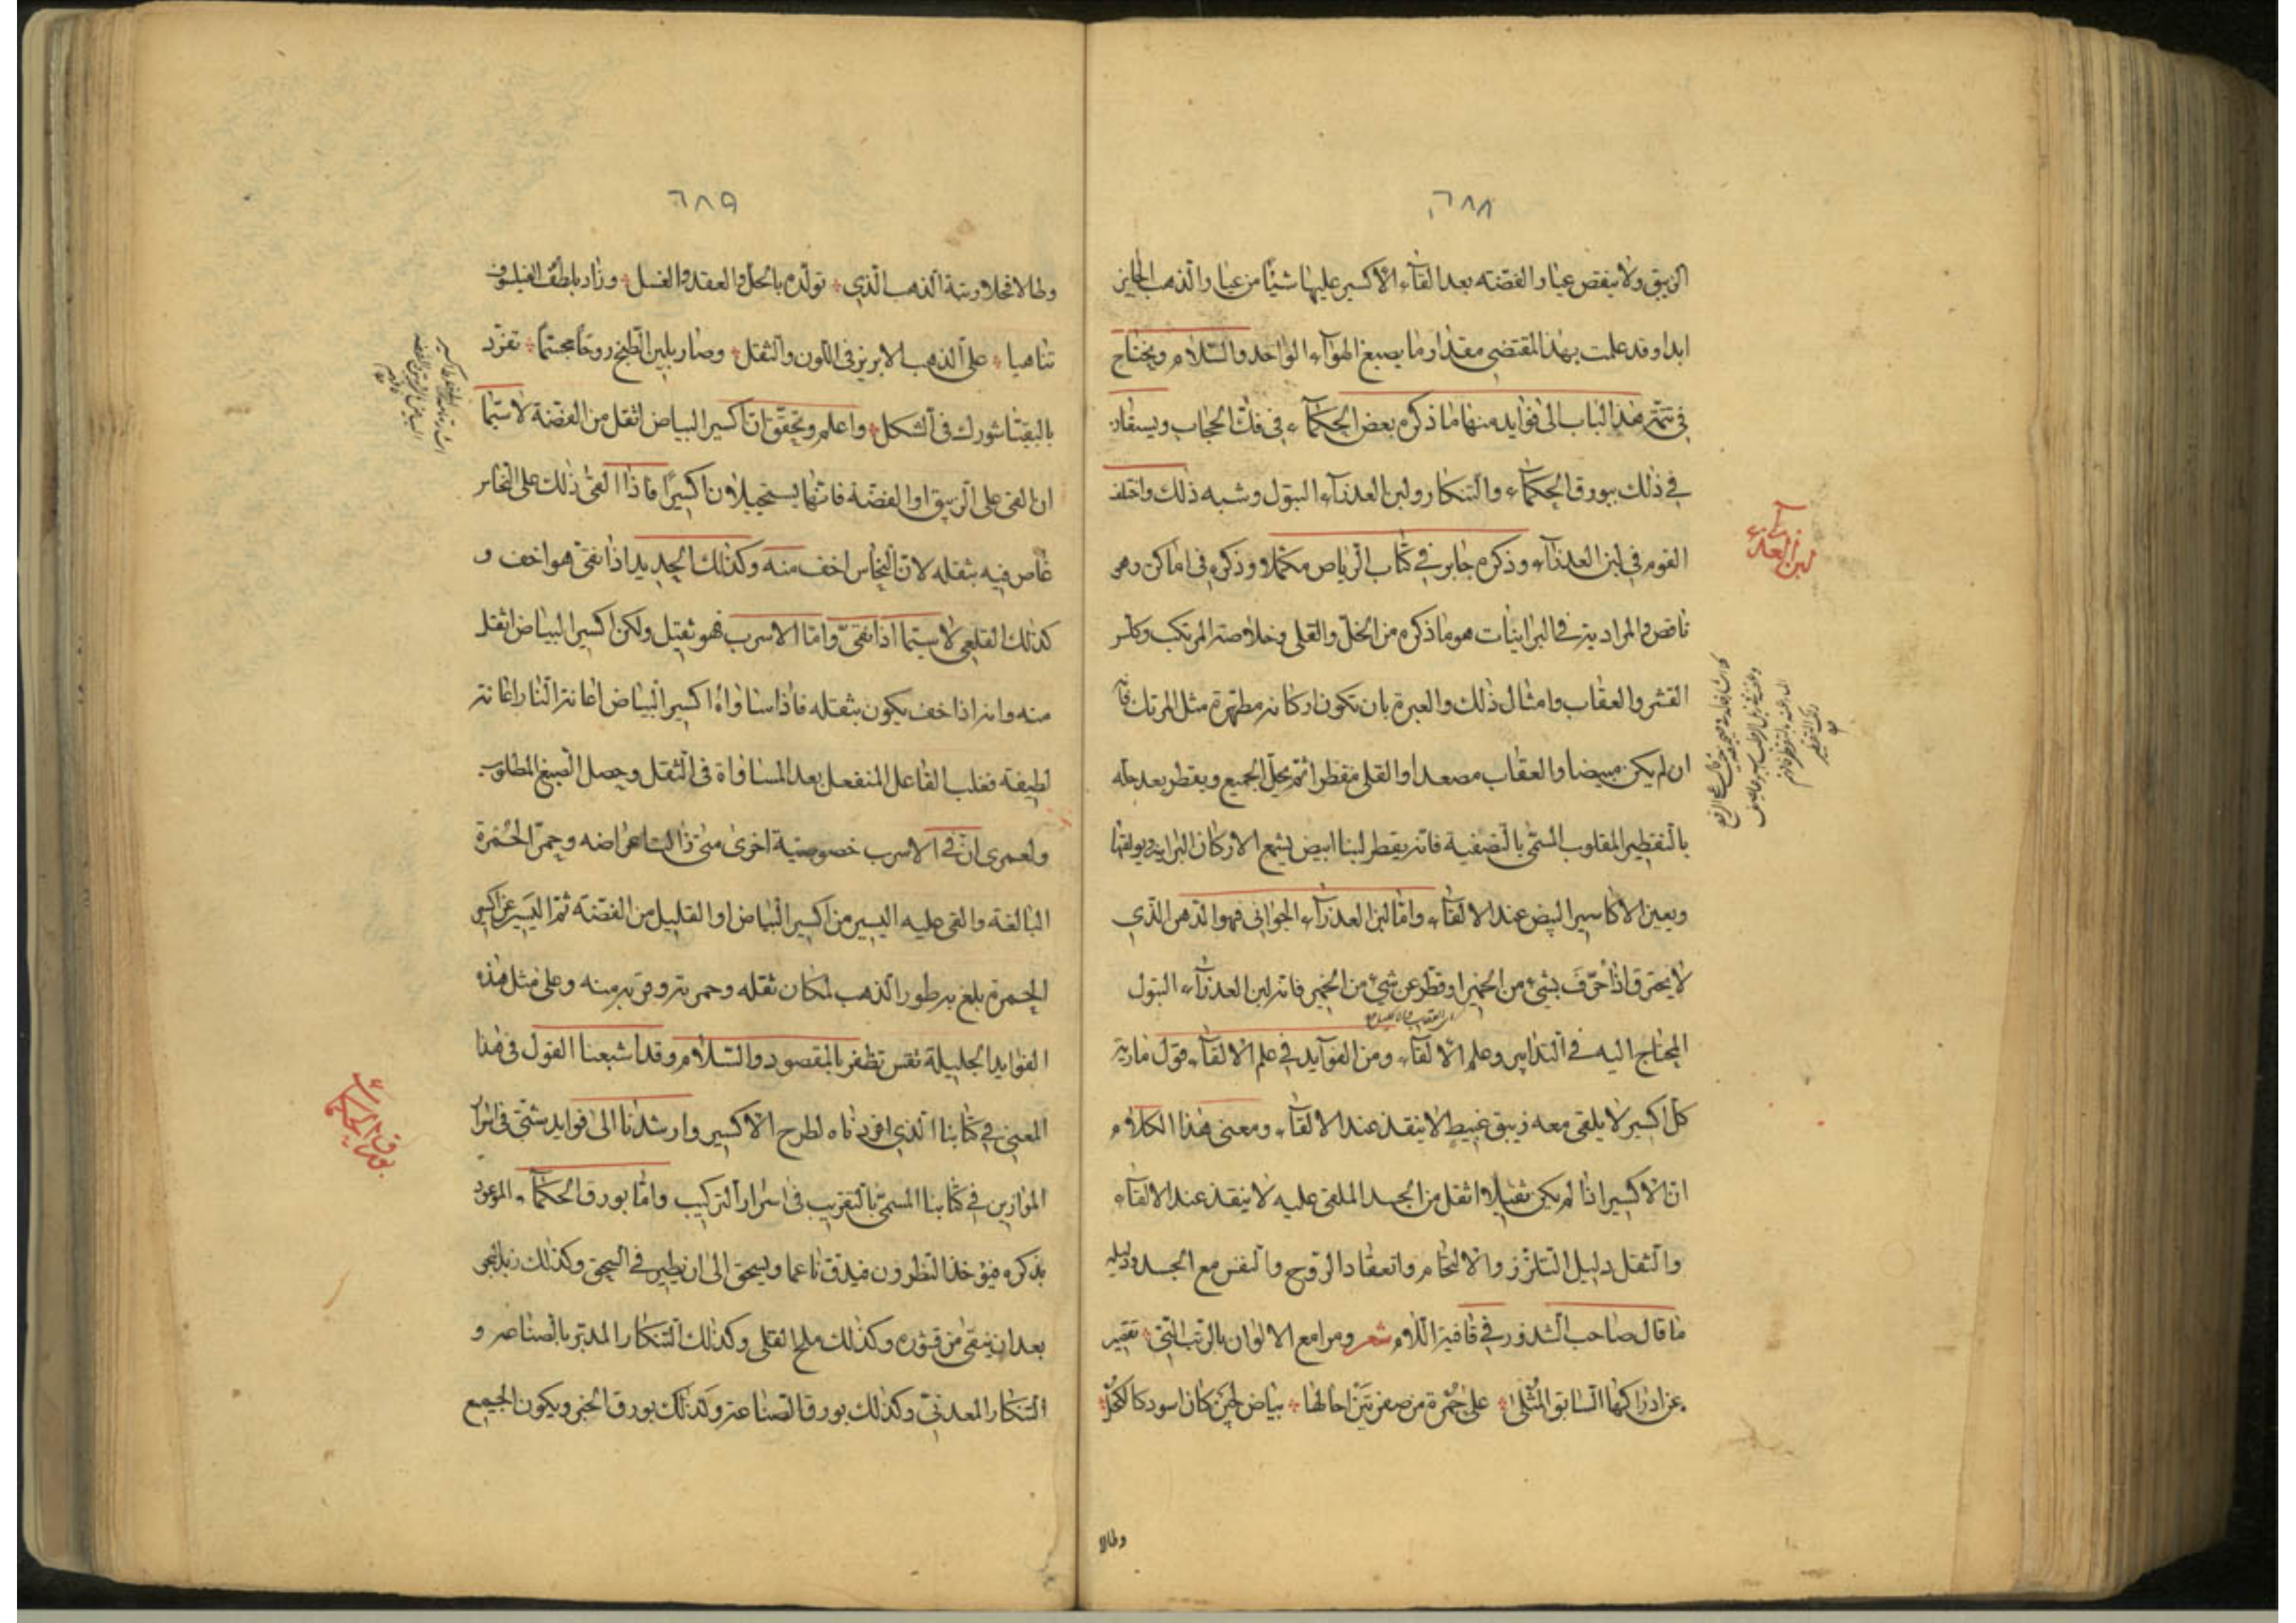 ٦٨٨
الزيبق ولا ينقص عيا والفضة بعد القآء الاكسير عليها شيئا من عيا والذهب الجايز
ابدا وقد علمت بهذا المقتضى مقدار ما يصبغ الهوآء الواحد والسّلام ويحتاج
في تتمّة هذا الباب الى فوايد منها ما ذكره بعض الحكمآء في فك الحجاب ويستفاد
في ذلك ببورق الحكمآء والتنكار ولبن العذرآء البتول وشبه ذلك واختلف
القوم في لبن العذرآء وذكره جابر في كتاب الرياض مكمّلا وذكره في اماكن وهو
ناقص والمراد به في البرانيات هو ما ذكره من الخلّ والقلى وخلاصة المرتك وكلس
القشر والعقاب وامثال ذلك والعبرة بان تكون اركانه مطهرة مثل المرتك فانه
ان لم يكن مبيضا والعقاب مصعدا والقلى مقطرا ثم يحلّ الجميع ويقطر بعد حلّه
بالتقطير المقلوب المسمّى بالتصفية فانه يقطر لبنا ابيض يشمع الاركان البرانية ويولفها
ويعين الاكاسير البيض عند الالقآء وامّا لبن العذرآء الجواني فهو الدهن الذي
لا يحترق اذا حرّف بشيء من الخمير او قطر عن شيء من الخمير فانه لبن العذرآء البتول
المحتاج اليه في التدابير وعلم الالقآء ومن الفوآيد في علم الالقآء قول مارية
كل اكسير لا يلقى معه زيبق غبيط لا ينفذ عند الالقآء ومعنى هذا الكلام
انّ الاكسير اذا لم يكن ثقيلا اثقل من الجسد الملقى عليه لا ينفذ عند الالقآء
والثقل دليل التلزز والالتحام وانعقاد الروح والنفس مع الجسد ودليله
ما قال صاحب الشذور في قافية اللام شعر ومرامع الالوان بالرتب التي تقصر
عن ادراكها السابق المثلى على حمرة من صفرتين احالها بياض لجين كان اسود كالكحل
وطالا
لبن العذرآء
٦٨٩
وطالا فحلا رتبة الذهب الذي تولّده بالحلّ والعقد والغسل وزاد بلطف الفيلسوف
تناهيا على الذهب الابريز في اللون والثقل وصار بلين الطبخ روحا مجسّما تفرّد
بالبقيا شورك في الشكل واعلم وتحقق انّ اكسير البياض اثقل من الفضة لا سيّما
ان القى على الزيبق او الفضة فانهما يستحيلان اكسيرا فاذا القى ذلك على النحاس
غاص فيه بثقله لانّ النحاس اخف منه وكذلك الحديد اذا نقى هو اخف و
كذلك القلعي لا سيّما اذا نقى وامّا الاسرب فهو ثقيل ولكن اكسير البياض اثقل
منه وانه اذا خف يكون بثقله فاذا ساواه اكسير البياض اعانته النار اعانة
لطيفة فغلب الفاعل المنفعل بعد المساواة في الثقل وحصل الصبغ المطلوب
ولعمرى انّ في الاسرب خصوصية اخرى متى زالت اعراضه وحمّر الحمرة
البالغة والقى عليه اليسير من اكسير البياض او القليل من الفضة ثمّ اليسير من اكسير
الحمرة بلغ به طور الذهب لمكان ثقله وحمرته وقربه منه وعلى مثل هذه
الفوايد الجليلة نقس تظفر بالمقصود والسّلام وقد اشبعنا القول في هذا
المعنى في كتابنا الذي افردناه لطرح الاكسير وارشدنا الى فوايد شتّى في اسرار
الموازين في كتابنا المسمّى بالتقريب في اسرار التركيب وامّا بورق الحكمآء الموعود
بذكره فيؤخذ النطرون فيدقّ ناعما ويسحق الى ان يطير في السحق وكذلك زبد البحر
بعد ان ينقى من قشوره وكذلك ملح القلى وكذلك التنكار المدبّر بالصناعة و
التنكار المعدنيّ وكذلك بورق الصناعة وكذلك بورق الخبز ويكون الجميع
بورق الحكمآء